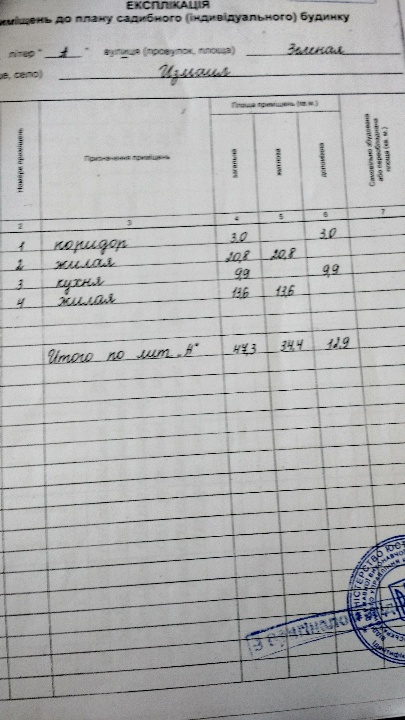 ЕКСПЛІКАЦІЯ
иміщень до плану садибного (індивідуального) будинку
літер " А " вулиця (провулок, площа) Зеленая
це, село) Измаил
Номери приміщень
Призначення приміщень
Площа приміщень (кв. м.)
загальна
житлова
допоміжна
Самовільно збудована або переобладнана площа (кв. м.)
2 3 4 5 6 7
1 коридор 3.0 3.0
2 жилая 20,8 20,8
3 кухня 9,9 9,9
4 жилая 13,6 13,6
Итого по лит „А" 47,3 34,4 12,9
З ОРИГІНАЛОМ